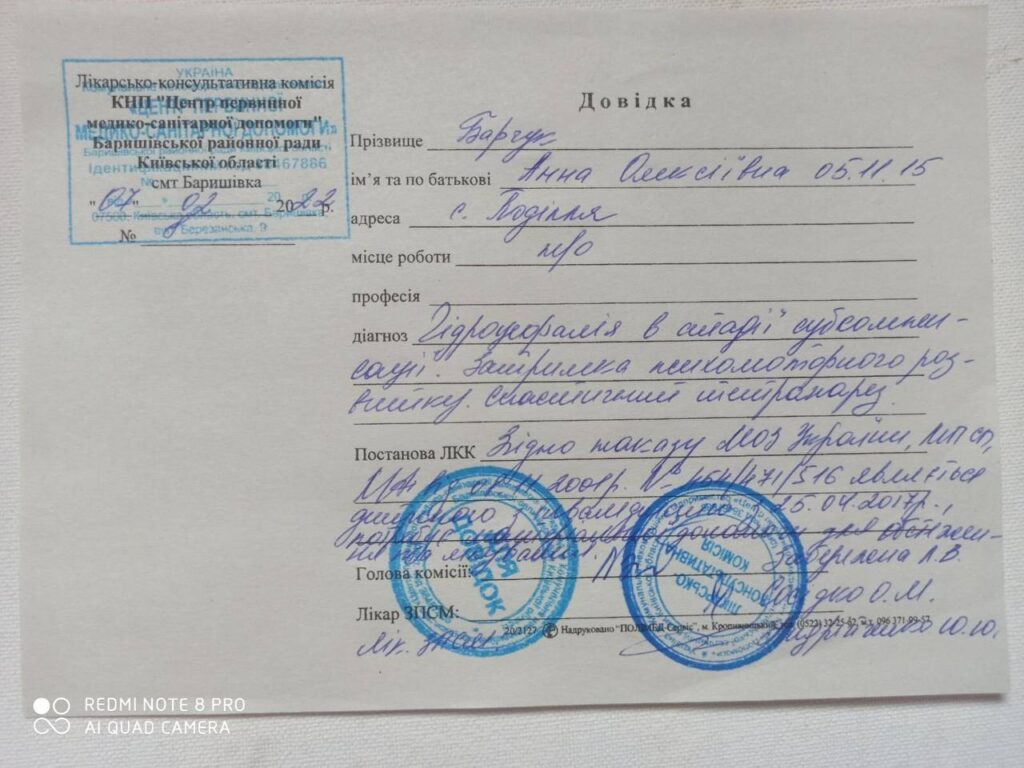 УКРАЇНА
Лікарсько-консультативна комісія
КНП "Центр первинної
медико-санітарної допомоги"
Баришівської районної ради
Київської області
смт Баришівка
"07" 02 2022 р.
№
«ЦЕНТР ПЕРВИННОЇ
МЕДИКО-САНІТАРНОЇ ДОПОМОГИ»
Баришівської районної ради
Ідентифікаційний
07500, Київська область, смт. Баришівка
вул. Березанська, 9
Довідка
Прізвище Барчук
ім’я та по батькові Анна Олексіївна 05.11.15
адреса с. Поділля
місце роботи н/о
професія
діагноз Гідроцефалія в стадії субкомпен-
сації. Затримка психомоторного роз-
витку. Спастичний тетрапарез.
Постанова ЛКК Згідно наказу МОЗ України, МПСП,
2001р. № 454/471/516 являється
дитиною інвалідом 25.04.2017р.,
потребує для обстежен-
ня та лікування.
Голова комісії:
Лікар ЗПСМ:
О.М.
Лік. Ю.Ю.
20/2127 Надруковано "ПОЛІМЕД-Сервіс", м. Кропивницький, (0522) 32-25-62
ДЛЯ
ДОВІДОК
ЛІКАРСЬКО
КОНСУЛЬТАТИВНА
КОМІСІЯ
REDMI NOTE 8 PRO
AI QUAD CAMERA